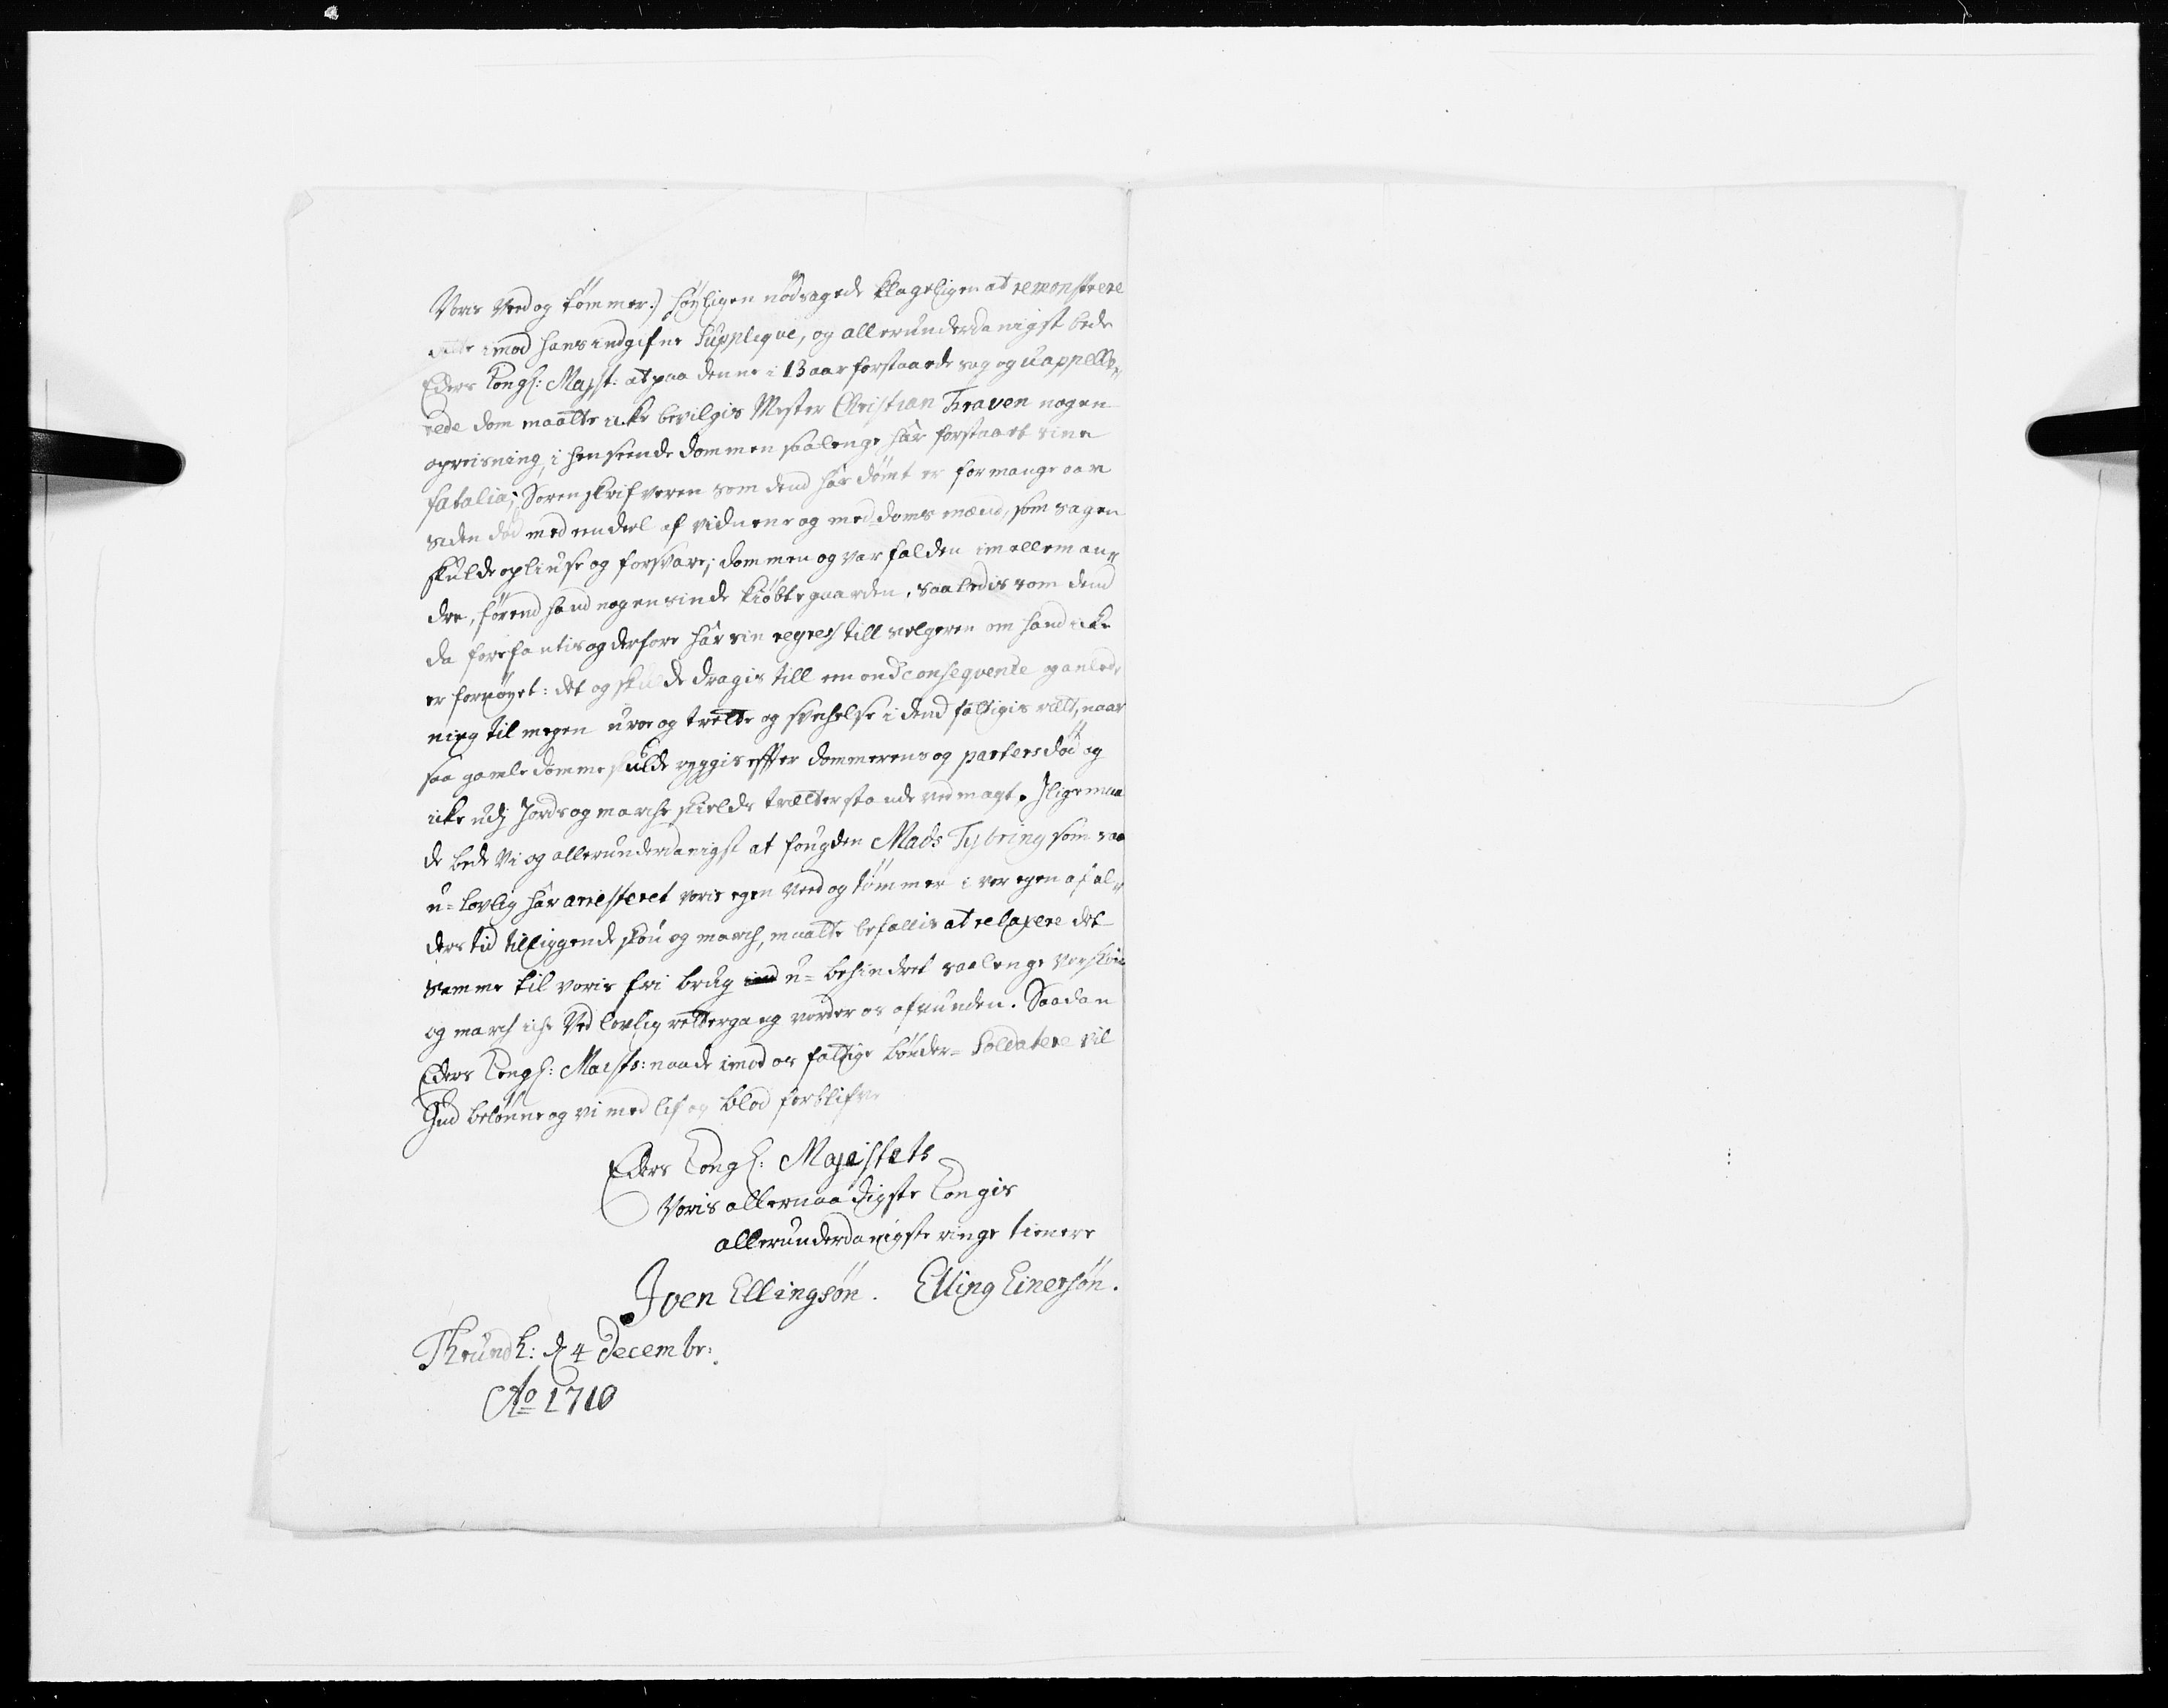 Voris Ved og tømmer:) høyligen nødsagede klageligen at remonstrere
dette imod hans indgifne Supplique, og allerunderdanigst bede
Eders Kongl: Mayst: at paa denne i 13 aar forstaaede sag og uappelle„
rede dom maatte icke bevilgis Mester Christian Fraven nogen
opreisning, i henseende dommen saalenge har forstaaet sine
fatalia; Sorenskrifveren som dend har dømt er for mange aar
siden død med endeel af vidnene og med-doms mænd, som sagen
skulde opliuse og forsvare; dommen og var falden imellem an„
dre, førend hand nogensinde kiøbte gaarden, saaledis som dend
da forefantis og derfore har sin regres till selgeren om hand icke
er fornøyet: det og skulde dragis till en ond conseqvente og anled„
ning til megen uroe og trette og svehelse i dend fattigis rett, naar
saa gamle domme skulde ryggis effter dommerens og parters død og
icke udj Jords og marche skields trætter stande ved magt. Iligemaa
de bede Vi og allerunderdanigst at fougden Mads Tybring som saa
u-lovlig har arresteret voris egen Ved og tømmer i vor egen af al„
ders tid tilliggende skou og march, maatte befallis at relaxere det
samme til voris fri brug u-behindret saalenge vor skou
og march iche Ved lovlig rettergang vorder os afvunden. Saadan
Eders Kongl: Maists: naade imod os fattige bønder-Soldatere vil
Gud belønne og vi med lif og blod forblifve
Eders Kongl: Majestets
Voris allernaadigste Kongis
allerunderdanigste ringe tienere
Iven Ellingsøn. Elling Einersøn.
Thrundh: d 4 Decembr:
Ao 1710